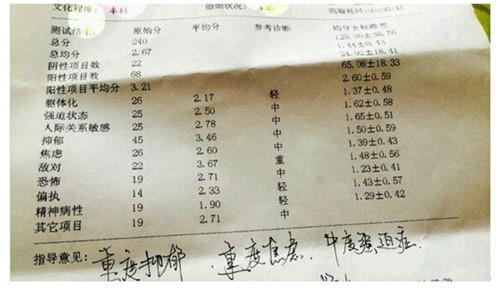 文化程度: 本科
测试结果: 原始分 平均分 参考诊断
总分 240 129.96±38.76
总均分 2.67 1.44±0.43
阴性项目数 22 24.92±18.41
阳性项目数 68 65.08±18.33
阳性项目平均分 3.21 2.60±0.59
躯体化 26 2.17 轻 1.37±0.48
强迫状态 25 2.50 中 1.62±0.58
人际关系敏感 25 2.78 中 1.65±0.51
抑郁 45 3.46 中 1.50±0.59
焦虑 26 2.60 中 1.39±0.43
敌对 22 3.67 重 1.48±0.56
恐怖 19 2.71 中 1.23±0.41
偏执 14 2.33 轻 1.43±0.57
精神病性 19 1.90 轻 1.29±0.42
其它项目 19 2.71 中
指导意见: 重度抑郁、重度焦虑、中度强迫症.